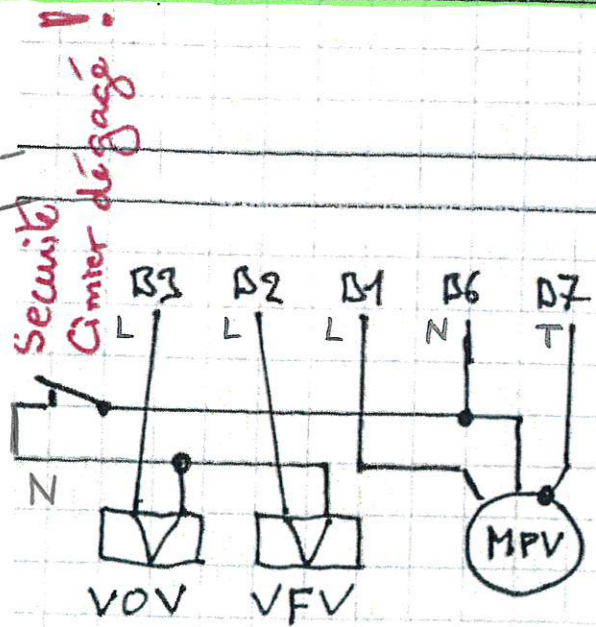 Securité
Cimier dégagé !
B3 B2 B1 B6 B7
L L L N T
N
MPV
VOV VFV